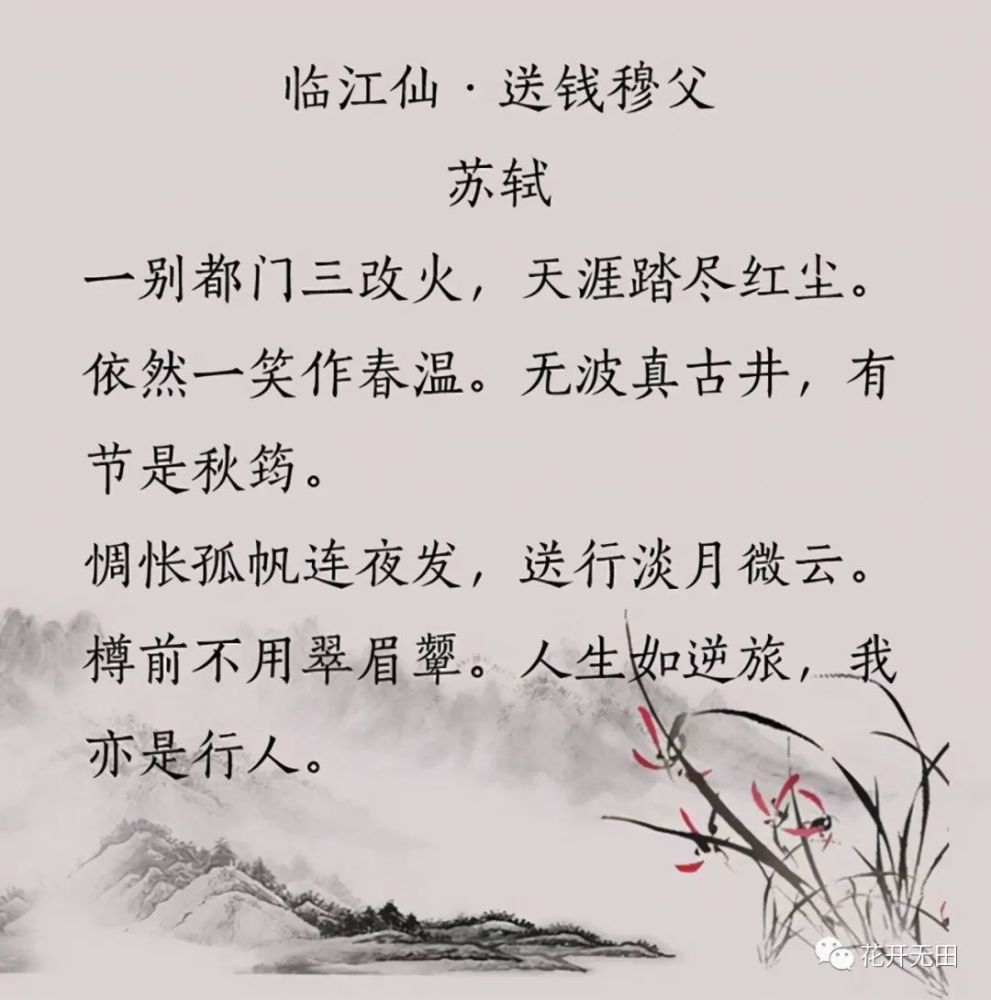 临江仙·送钱穆父
苏轼
一别都门三改火，天涯踏尽红尘。
依然一笑作春温。无波真古井，有
节是秋筠。
惆怅孤帆连夜发，送行淡月微云。
樽前不用翠眉颦。人生如逆旅，我
亦是行人。
花开无田